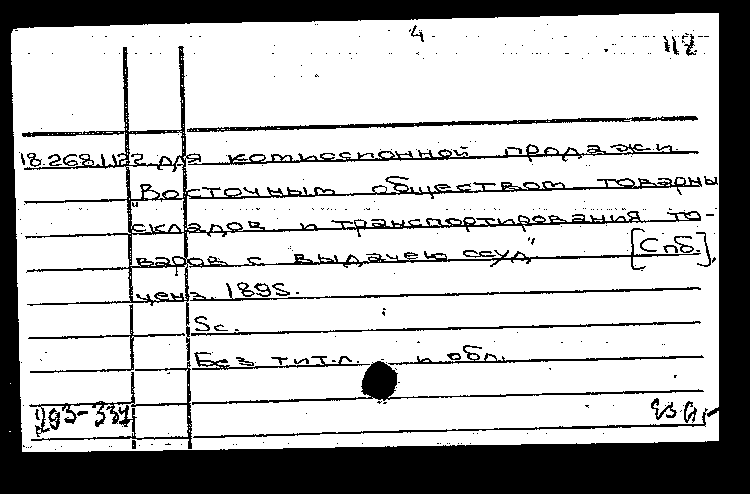 4
112
18.268.1.122 для комиссионной продажи
"Восточным обществом товарны
складов и транспортирования то-
варов с выдачею ссуд" [Спб.],
ценз. 1895.
5с.
Без тит.л. и обл.
293-337